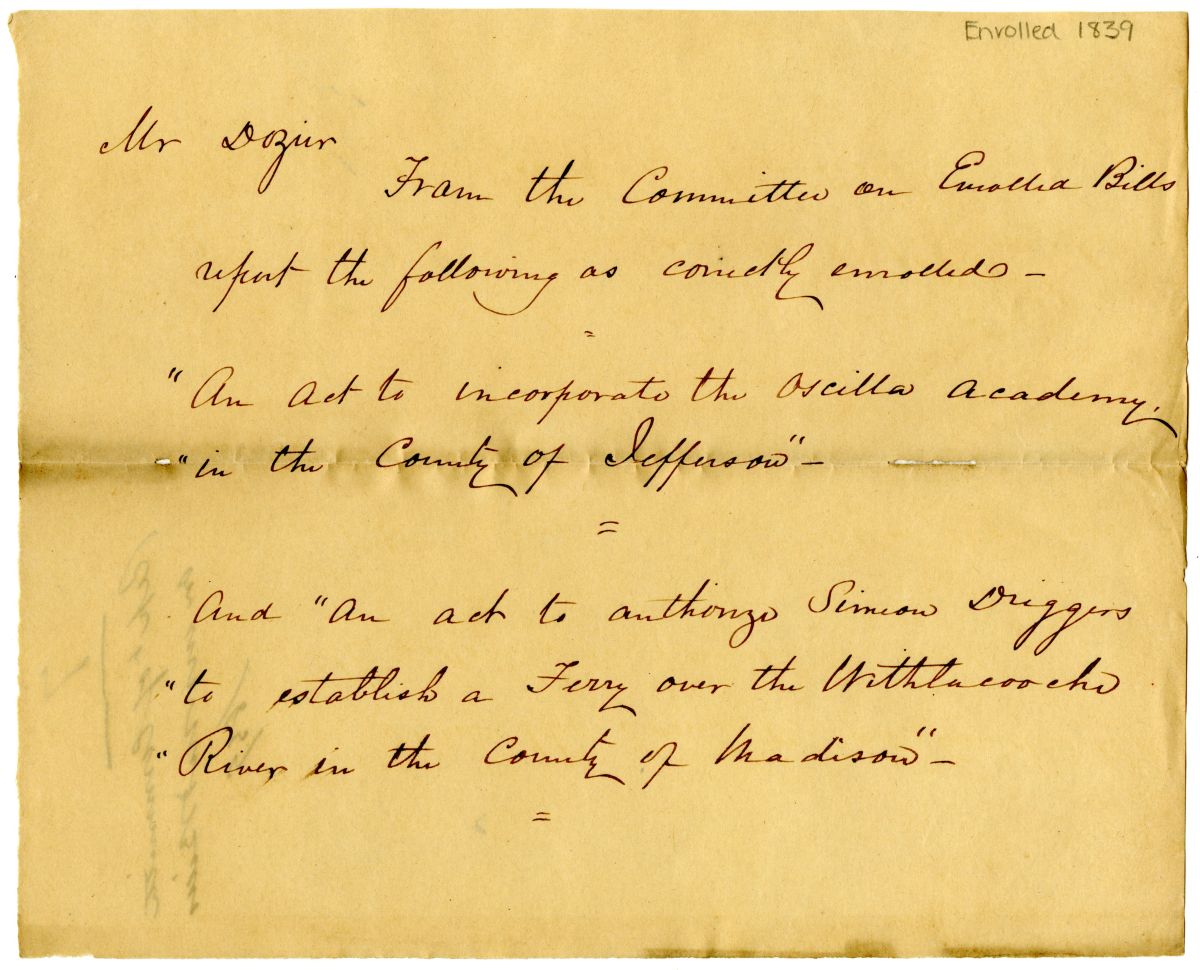 Enrolled 1839
Mr Dozier
From the Committee on Enrolled Bills
report the following as correctly enrolled –
=
"An act to incorporate the Oscilla academy,
"in the County of Jefferson" –
=
And "An act to authorize Simeon Driggers
"to establish a Ferry over the Withlacooche
"River in the County of Madison" –
=